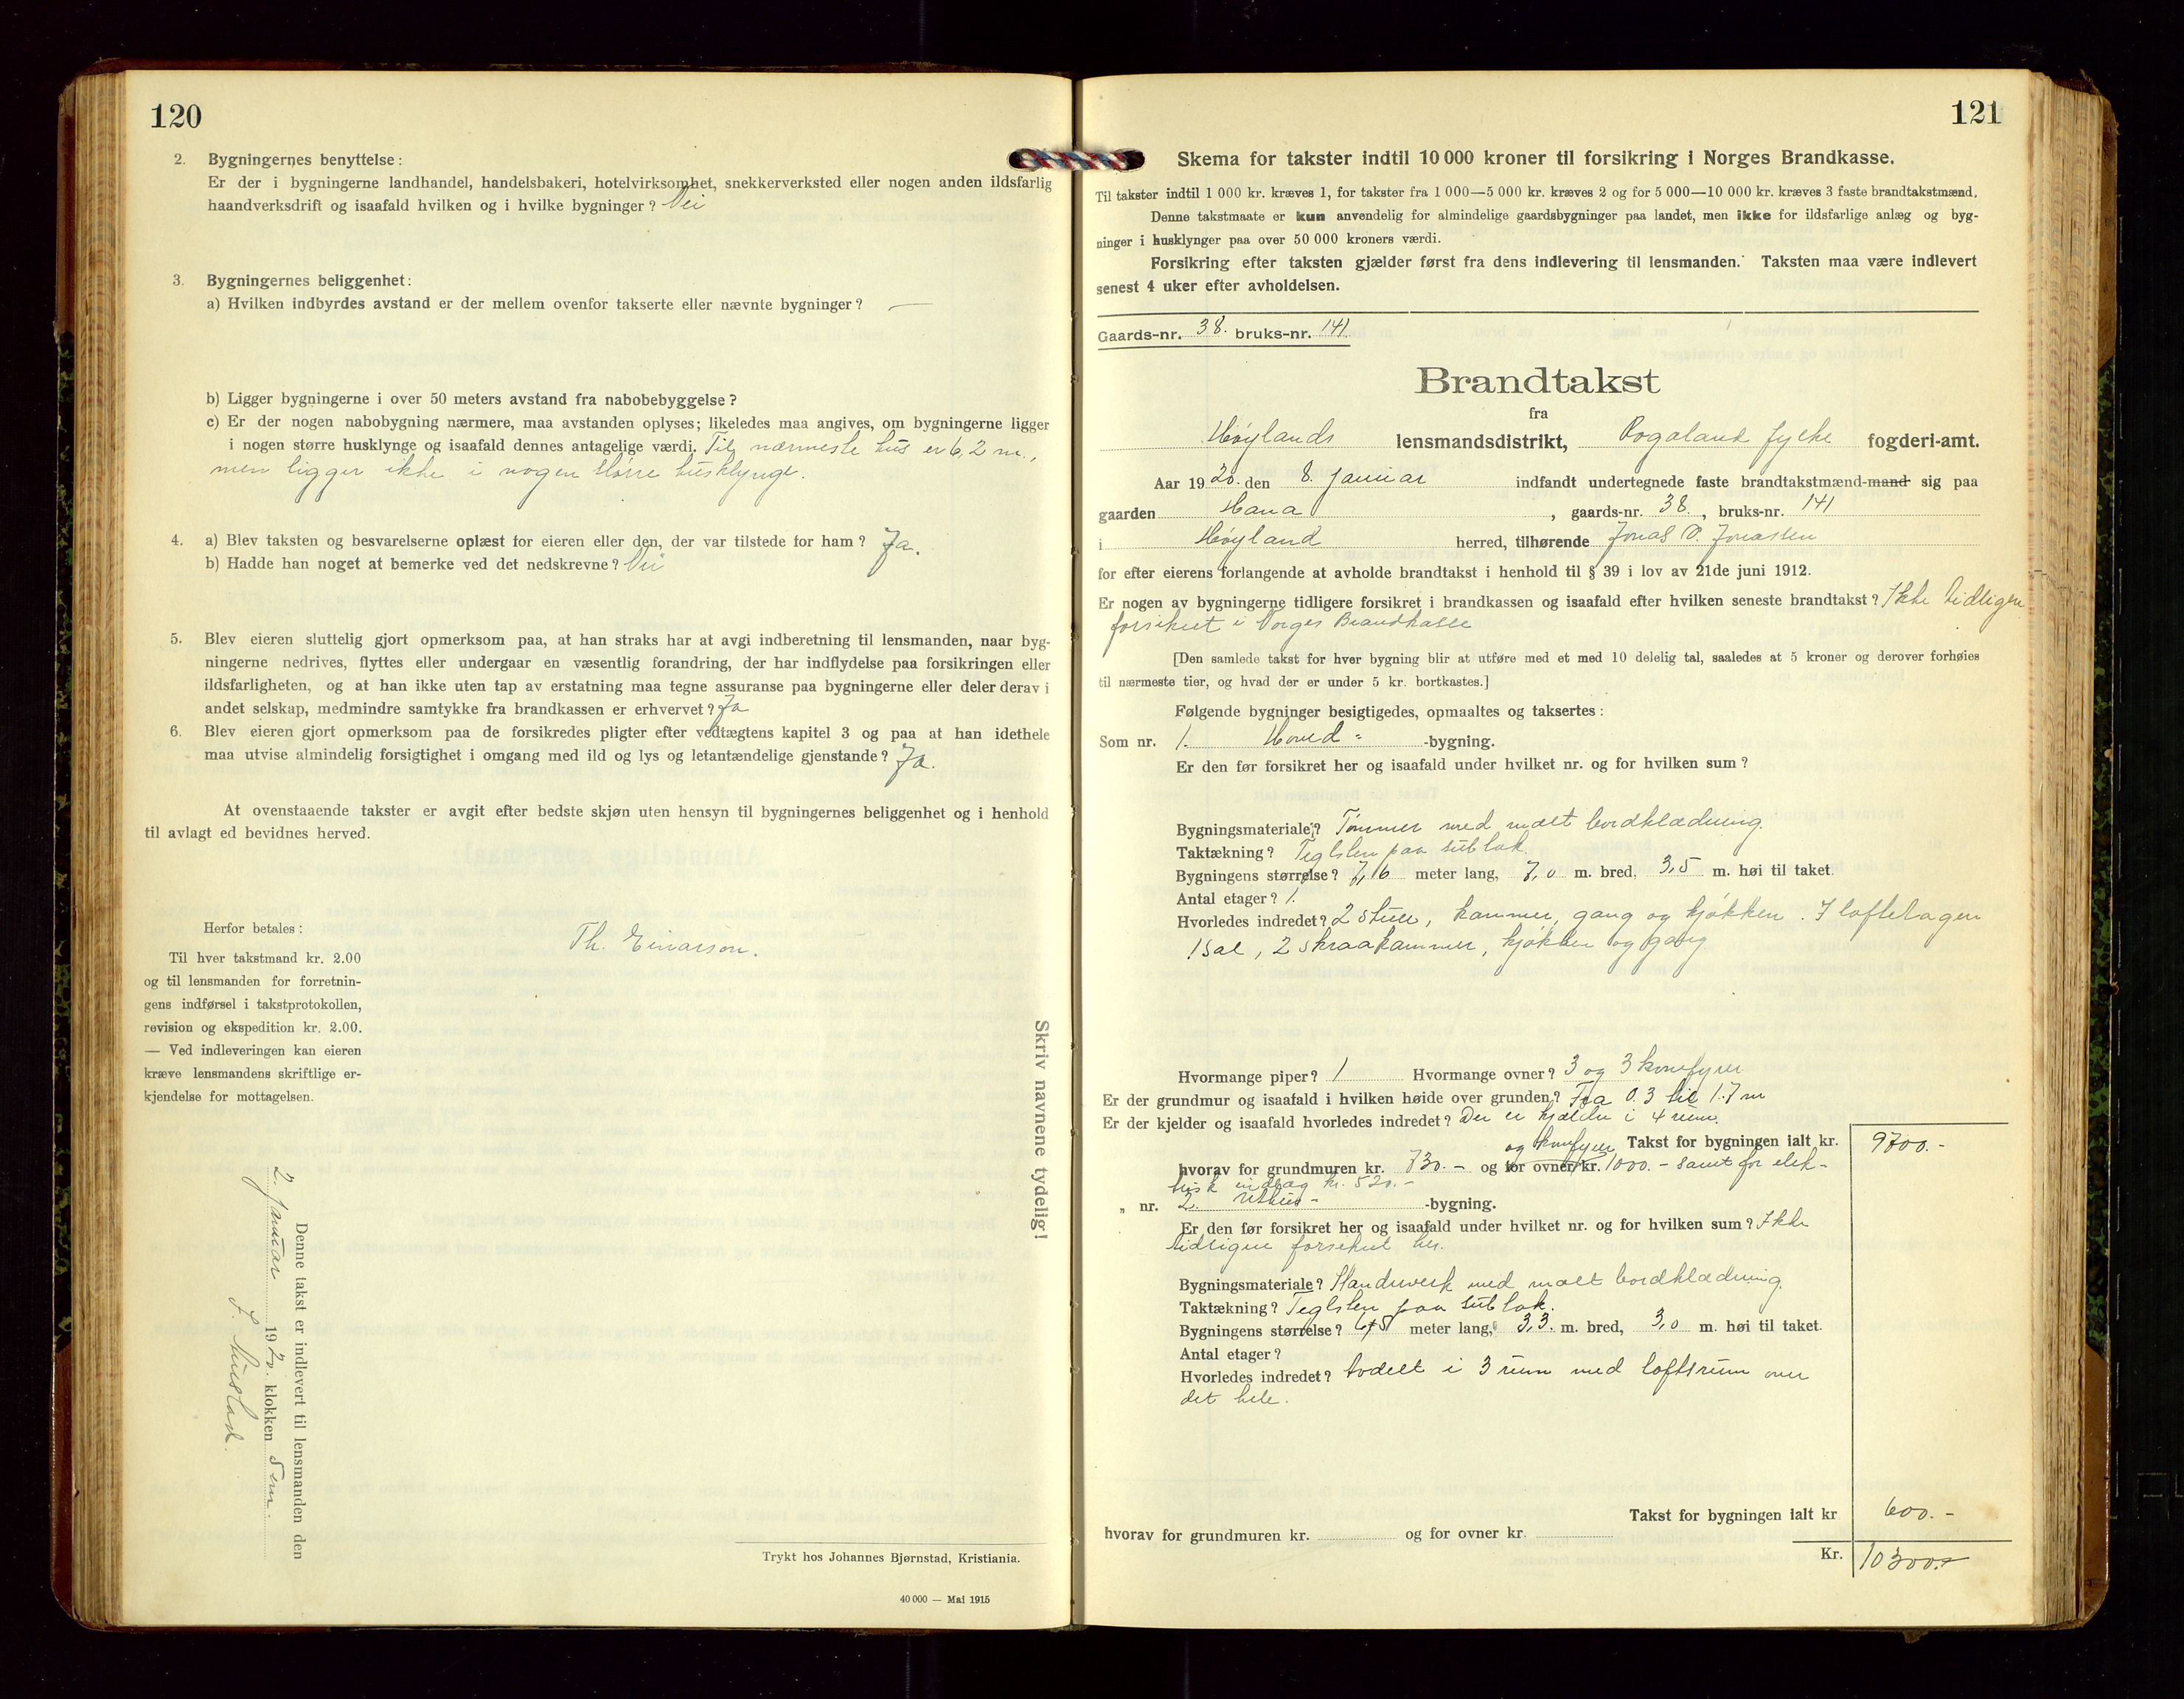 120
2. Bygningernes benyttelse:
Er der i bygningerne landhandel, handelsbakeri, hotelvirksomhet, snekkerverksted eller nogen anden ildsfarlig
haandverksdrift og isaafald hvilken og i hvilke bygninger? Nei
3. Bygningernes beliggenhet:
a) Hvilken indbyrdes avstand er der mellem ovenfor takserte eller nævnte bygninger? —
b) Ligger bygningerne i over 50 meters avstand fra nabobebyggelse?
c) Er der nogen nabobygning nærmere, maa avstanden oplyses; likeledes maa angives, om bygningerne ligger
i nogen større husklynge og isaafald dennes antagelige værdi. Til nærmeste hus er 6,2 m.,
men ligger ikke i nogen større husklynge.
4. a) Blev taksten og besvarelserne oplæst for eieren eller den, der var tilstede for ham? Ja.
b) Hadde han noget at bemerke ved det nedskrevne? Nei
5. Blev eieren sluttelig gjort opmerksom paa, at han straks har at avgi indberetning til lensmanden, naar byg-
ningerne nedrives, flyttes eller undergaar en væsentlig forandring, der har indflydelse paa forsikringen eller
ildsfarligheten, og at han ikke uten tap av erstatning maa tegne assuranse paa bygningerne eller deler derav i
andet selskap, medmindre samtykke fra brandkassen er erhvervet? Ja
6. Blev eieren gjort opmerksom paa de forsikredes pligter efter vedtægtens kapitel 3 og paa at han idethele
maa utvise almindelig forsigtighet i omgang med ild og lys og letantændelige gjenstande? Ja.
At ovenstaaende takster er avgit efter bedste skjøn uten hensyn til bygningernes beliggenhet og i henhold
til avlagt ed bevidnes herved.
Herfor betales:
Til hver takstmand kr. 2.00
og til lensmanden for forretnin-
gens indførsel i takstprotokollen,
revision og ekspedition kr. 2.00.
— Ved indleveringen kan eieren
kræve lensmandens skriftlige er-
kjendelse for mottagelsen.
Th. Einarson.
Skriv navnene tydelig!
Denne takst er indlevert til lensmanden den
2. januar 1920. klokken 5 em.
Trykt hos Johannes Bjørnstad, Kristiania.
40 000 — Mai 1915
121
Skema for takster indtil 10 000 kroner til forsikring i Norges Brandkasse.
Til takster indtil 1 000 kr. kræves 1, for takster fra 1 000—5 000 kr. kræves 2 og for 5 000—10 000 kr. kræves 3 faste brandtakstmænd.
Denne takstmaate er kun anvendelig for almindelige gaardsbygninger paa landet, men ikke for ildsfarlige anlæg og byg-
ninger i husklynger paa over 50 000 kroners værdi.
Forsikring efter taksten gjælder først fra dens indlevering til lensmanden. Taksten maa være indlevert
senest 4 uker efter avholdelsen.
Gaards-nr. 38. bruks-nr. 141.
Brandtakst
fra
Høylands lensmandsdistrikt, Rogaland fylke fogderi-amt.
Aar 1920. den 8. januar indfandt undertegnede faste brandtakstmænd-mand sig paa
gaarden Hana, gaards-nr. 38., bruks-nr. 141
i Høyland herred, tilhørende Jonas O. Jonassen
for efter eierens forlangende at avholde brandtakst i henhold til § 39 i lov av 21de juni 1912.
Er nogen av bygningerne tidligere forsikret i brandkassen og isaafald efter hvilken seneste brandtakst? Ikke tidligere
forsikret i Norges Brandkasse
[Den samlede takst for hver bygning blir at utføre med et med 10 delelig tal, saaledes at 5 kroner og derover forhøies
til nærmeste tier, og hvad der er under 5 kr. bortkastes.]
Følgende bygninger besigtigedes, opmaaltes og taksertes:
Som nr. 1. Hoved- -bygning.
Er den før forsikret her og isaafald under hvilket nr. og for hvilken sum?
Bygningsmateriale? Tømmer med malt bordklædning.
Taktækning? Teglsten paa sutak
Bygningens størrelse? 7,16 meter lang, 7,0 m. bred, 3,5 m. høi til taket.
Antal etager? 1.
Hvorledes indredet? 2 stuer, kammer, gang og kjøkken. I loftetagen
1 sal, 2 skraakammer, kjøkken og gang
Hvormange piper? 1 Hvormange ovner? 3 og 3 komfyrer
Er der grundmur og isaafald i hvilken høide over grunden? Fra 0.3 til 1.7 m
Er der kjelder og isaafald hvorledes indredet? Der er kjælder i 4 rum.
og komfyrer Takst for bygningen ialt kr. 9700.-
hvorav for grundmuren kr. 730.- og for ovner kr. 1000.- samt for elek-
trisk indlæg kr. 520.-
„ nr. 2. Uthus- -bygning.
Er den før forsikret her og isaafald under hvilket nr. og for hvilken sum? Ikke
tidligere forsikret her.
Bygningsmateriale? Standverk med malt bordklædning.
Taktækning? Teglsten paa sutak.
Bygningens størrelse? 6,5 meter lang, 3,3. m. bred, 3,0 m. høi til taket.
Antal etager?
Hvorledes indredet? Avdelt i 3 rum med loftsrum over
det hele.
Takst for bygningen ialt kr 600.-
hvorav for grundmuren kr. og for ovner kr.
Kr. 10300.-